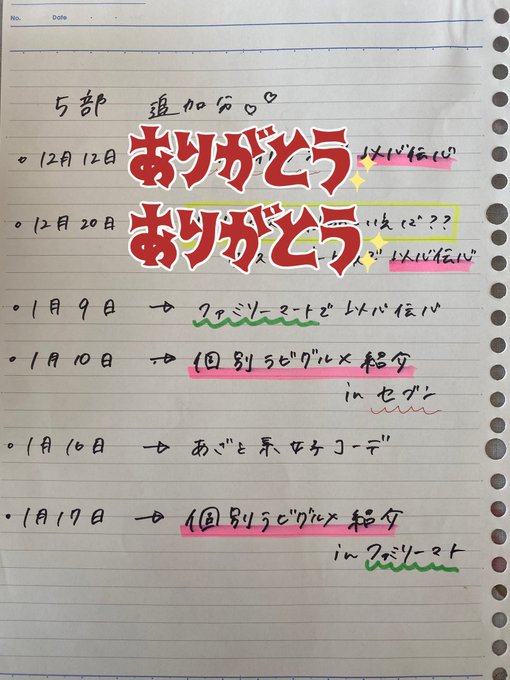 No.
Date
5部 追加分♡♡
•12月12日 以心伝心
ありがとう
•12月20日 いえば??
ありがとう
で 以心伝心
•1月9日 → ファミリーマートで以心伝心
•1月10日 → 個別ラビグルメ紹介
in セブン
•1月16日 → あざと系女子コーデ
•1月17日 → 個別ラビグルメ紹介
in ファミリーマト